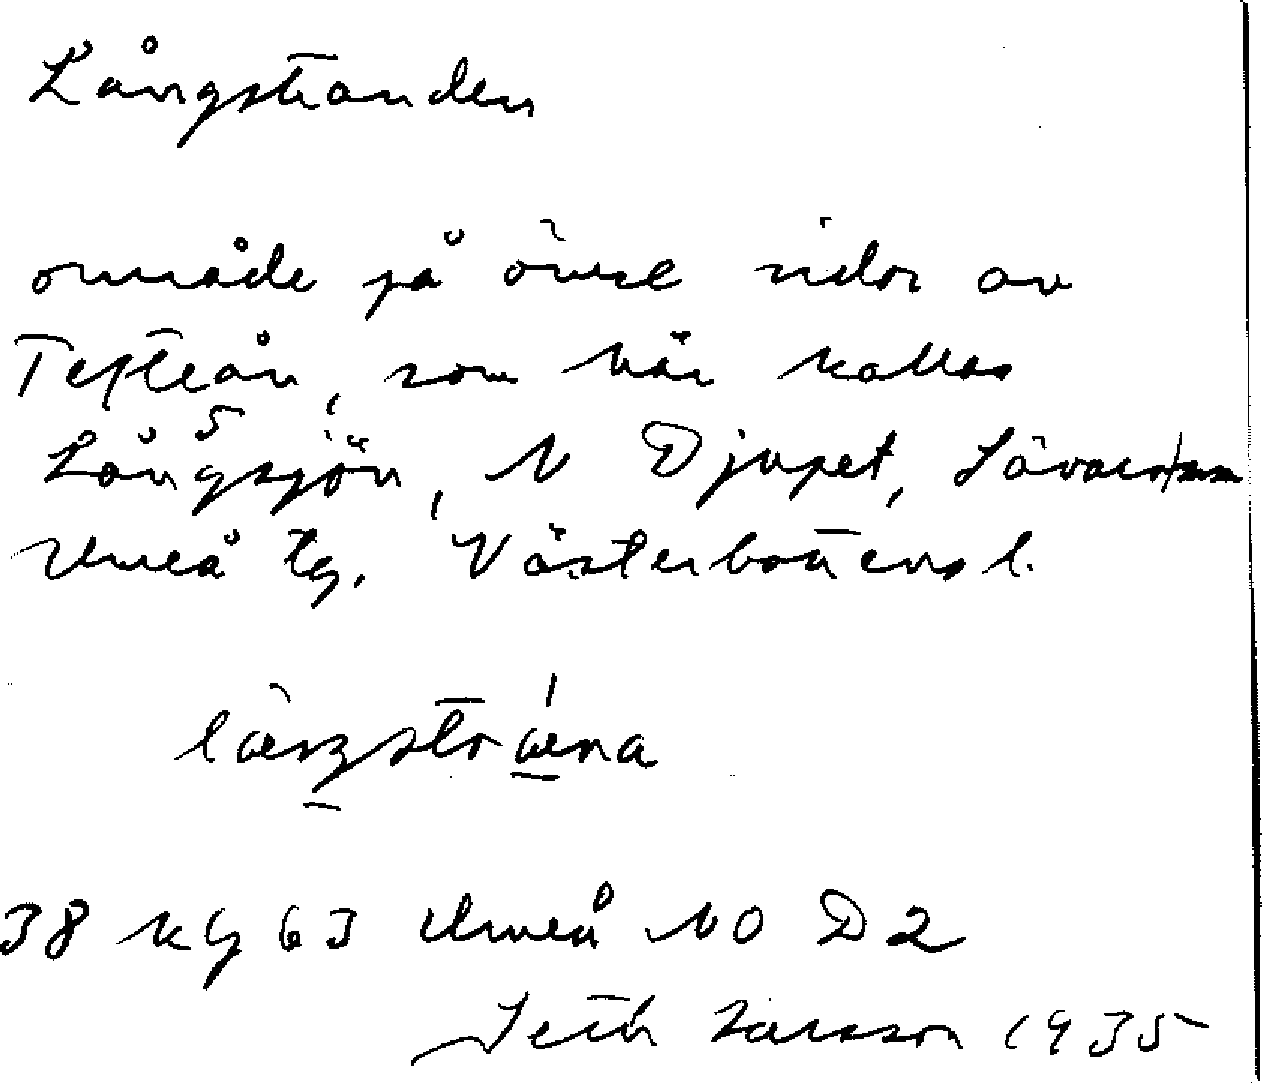 Långstranden
område på ömse sidor av
Tefteån, som här kallas
Långsjön, N Djupet, Sävar
Umeå tg. Västerbottens l.
38 kg 63 Umeå NO D2
Seth Larsson 1935